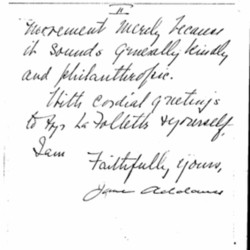 11
movement merely because
it sounds generally kindly
and philanthropic.
With cordial greetings
to Mrs La Follette & yourself,
I am
Faithfully yours,
Jane Addams